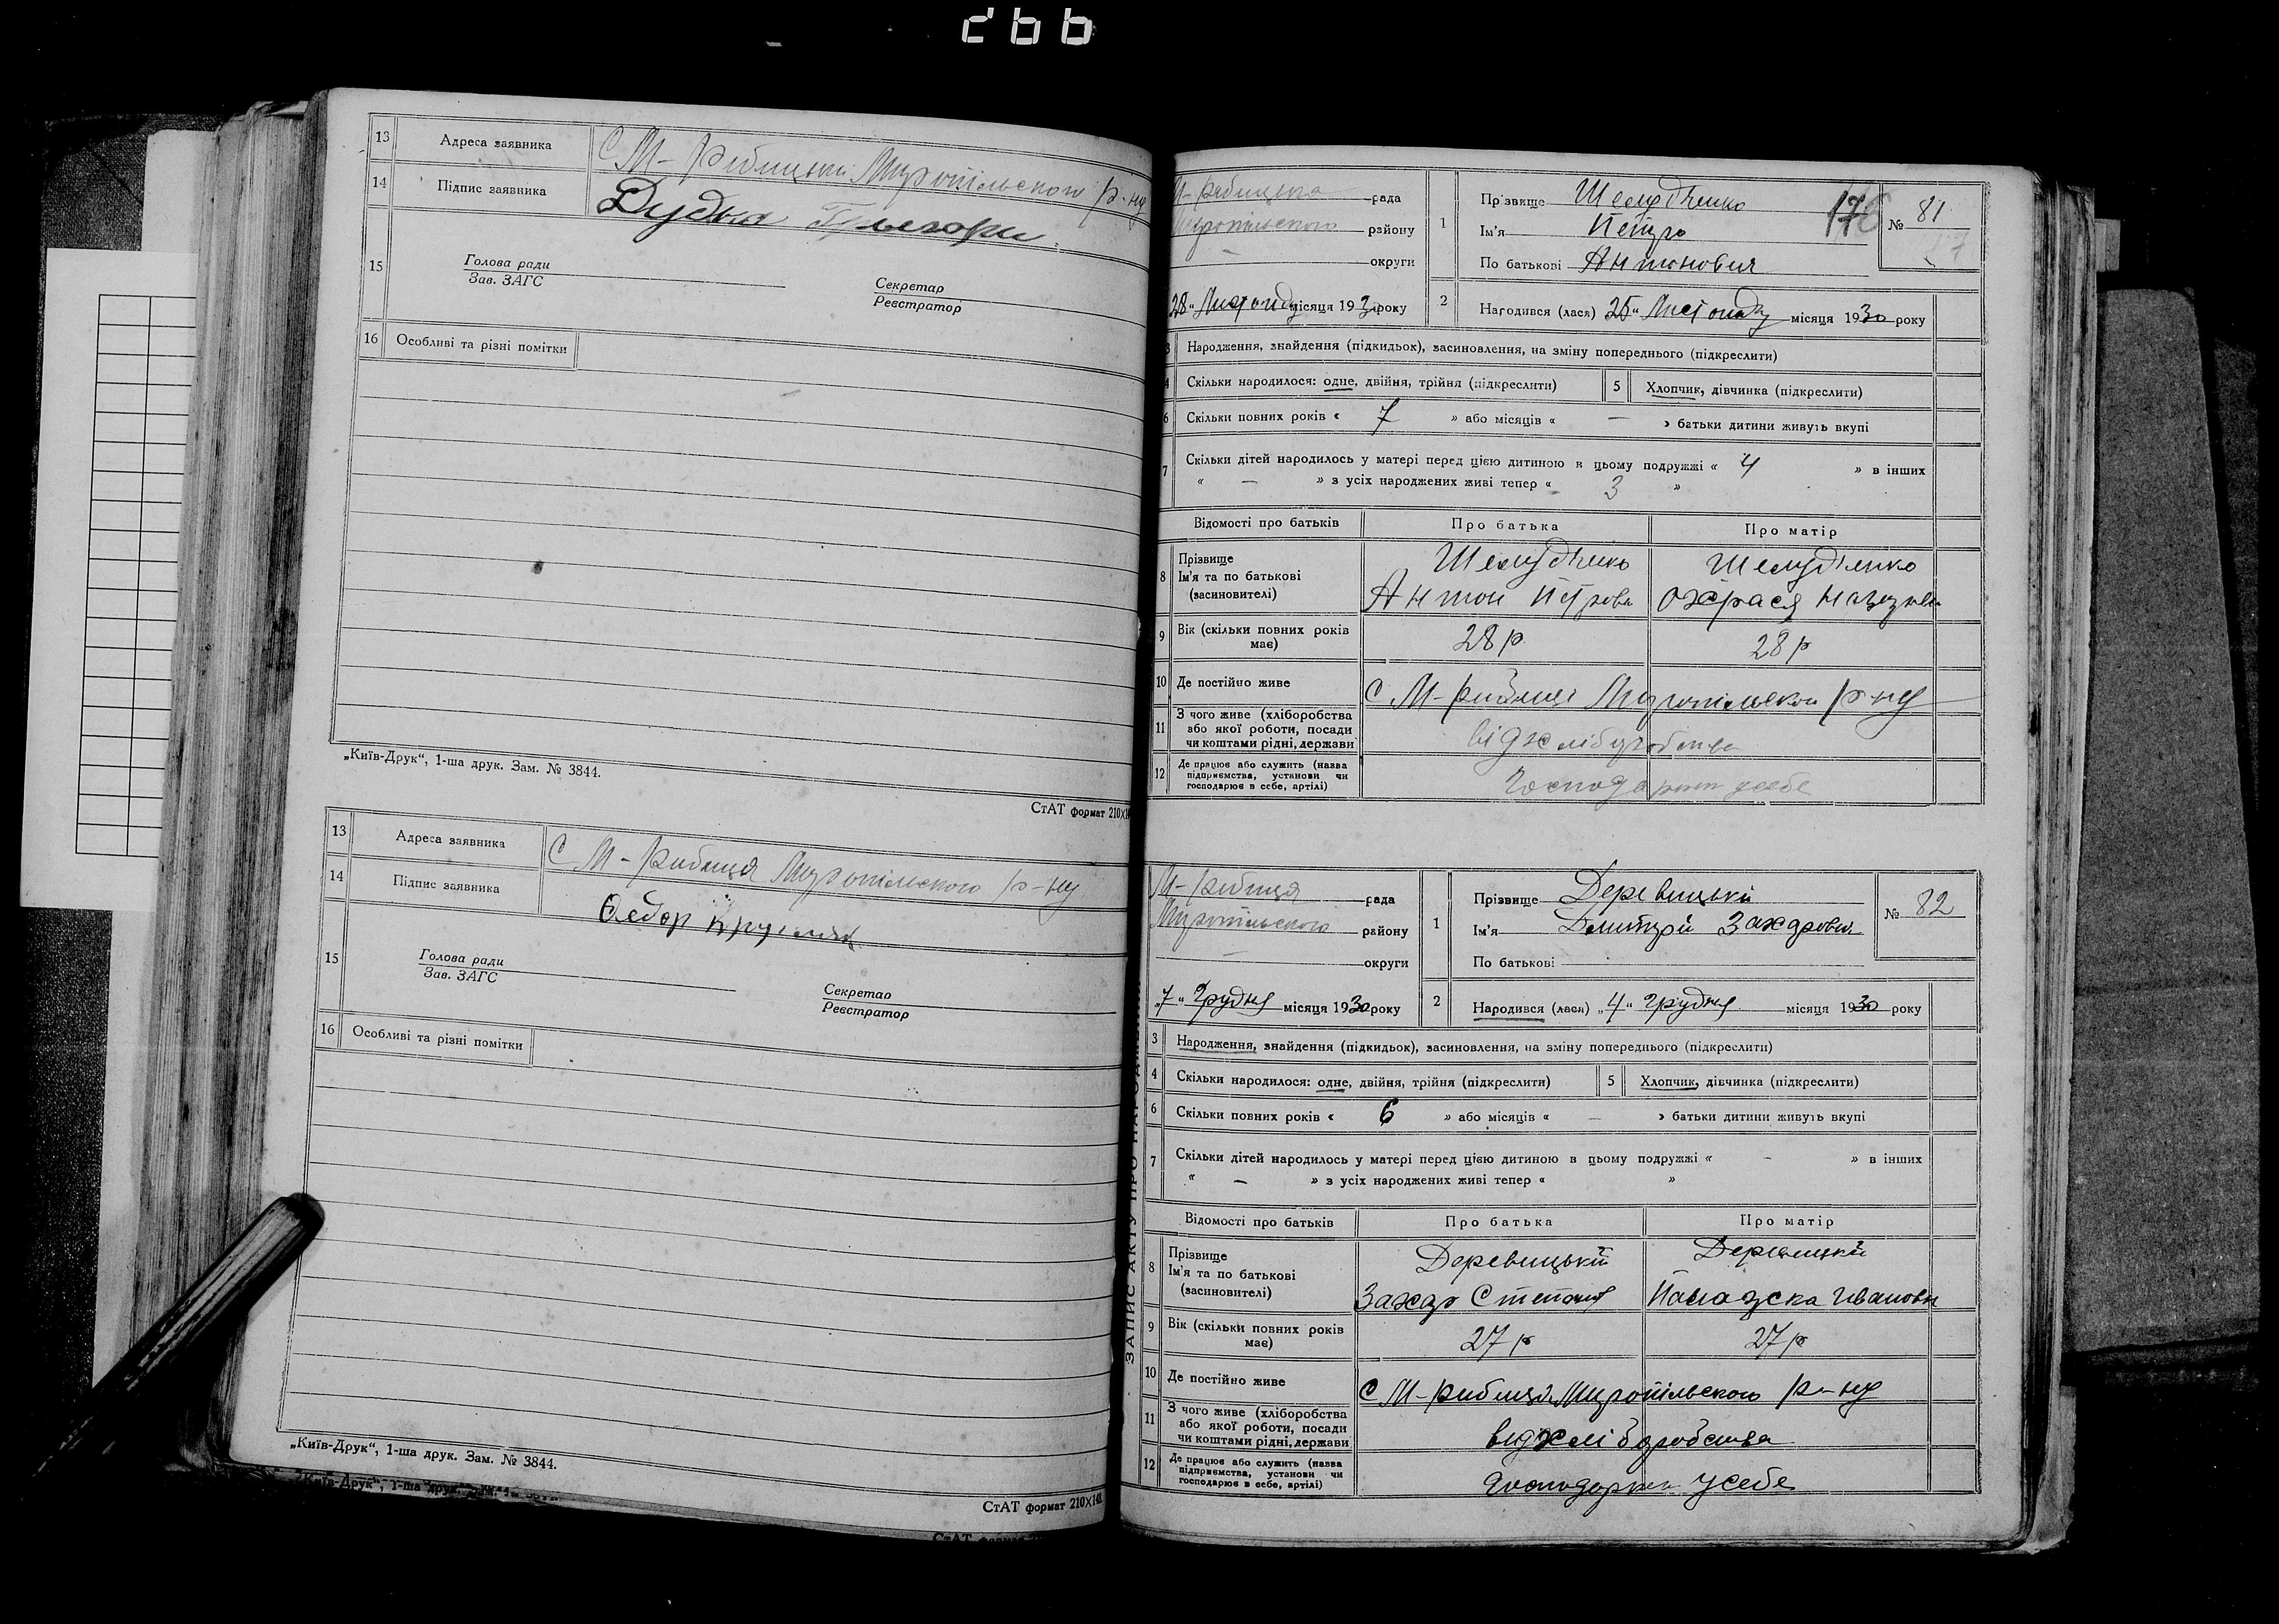 266
13 Адреса заявника С М- Рибицький Миропільского р-ну
14 Підпис заявника Дудка
15 Голова ради
Зав. ЗАГС
Секретар
Реєстратор
16 Особливі та різні помітки
„Київ-Друк“, 1-ша друк. Зам. № 3844.
СтАТ формат 210
13 Адреса заявника С М- Рибиця Миропільского р-ну
14 Підпис заявника Федор
15 Голова ради
Зав. ЗАГС
Секретар
Реєстратор
16 Особливі та різні помітки
„Київ-Друк“, 1-ша друк. Зам. № 3844.
СтАТ формат 210×14
„Київ-Друк“, 1-ша друк.
СтАТ
ЗАПИС АКТУ ПРО НАРОДЖЕННЯ
М- Рибицька рада
Миропільского району
— округи
28 “ Листопаду місяця 1930 року
1 Прізвище Шелудченко
Ім'я Петро
По батькові Антонович
176
№ 81
2 Народився (лася) 25 “ Листопаду місяця 1930 року
3 Народження, знайдення (підкидьок), засиновлення, на зміну попереднього (підкреслити)
4 Скільки народилося: одне, двійня, трійня (підкреслити) 5 Хлопчик, дівчинка (підкреслити)
6 Скільки повних років « 7 » або місяців « — » батьки дитини живуть вкупі
7 Скільки дітей народилось у матері перед цією дитиною в цьому подружжі « 4 » в інших
« — » з усіх народжених живі тепер « 3 »
Відомості про батьків Про батька Про матір
8 Прізвище Шелудченко Шелудченко
Ім'я та по батькові Антон Петров
(засновителі)
9 Вік (скільки повних років має) 28 р 28 р
10 Де постійно живе С М- Рибиця Миропільскои р-ну
11 З чого живе (хліборобства або якої роботи, посади чи коштами рідні, держави) від хліборобства
12 Де працює або служить (назва підприємства, установи чи господарює в себе, артілі) Господарює усебе
М- Рибиця рада
Миропільского району
— округи
„7“ Грудня місяця 1930 року
1 Прізвище Деревицькій
Ім'я Дмитрй Захарович
По батькові
№ 82
2 Народився (лася) „4“ Грудня місяця 1930 року
3 Народження, знайдення (підкидьок), засиновлення, на зміну попереднього (підкреслити)
4 Скільки народилося: одне, двійня, трійня (підкреслити) 5 Хлопчик, дівчинка (підкреслити)
6 Скільки повних років « 6 » або місяців « — » батьки дитини живуть вкупі
7 Скільки дітей народилось у матері перед цією дитиною в цьому подружжі « – » в інших
« — » з усіх народжених живі тепер « »
Відомості про батьків Про батька Про матір
8 Прізвище Деревицькій Деревицкій
Ім'я та по батькові Захар Степанов Ивановн
(засиновителі)
9 Вік (скільки повних років має) 27 р 27 р
10 Де постійно живе С М- Рибиця Миропільского р-ну
11 З чого живе (хліборобства або якої роботи, посади чи коштами рідні, держави) від хліборобства
12 Де працює або служить (назва підприємства, установи чи господарює в себе, артілі) усебе